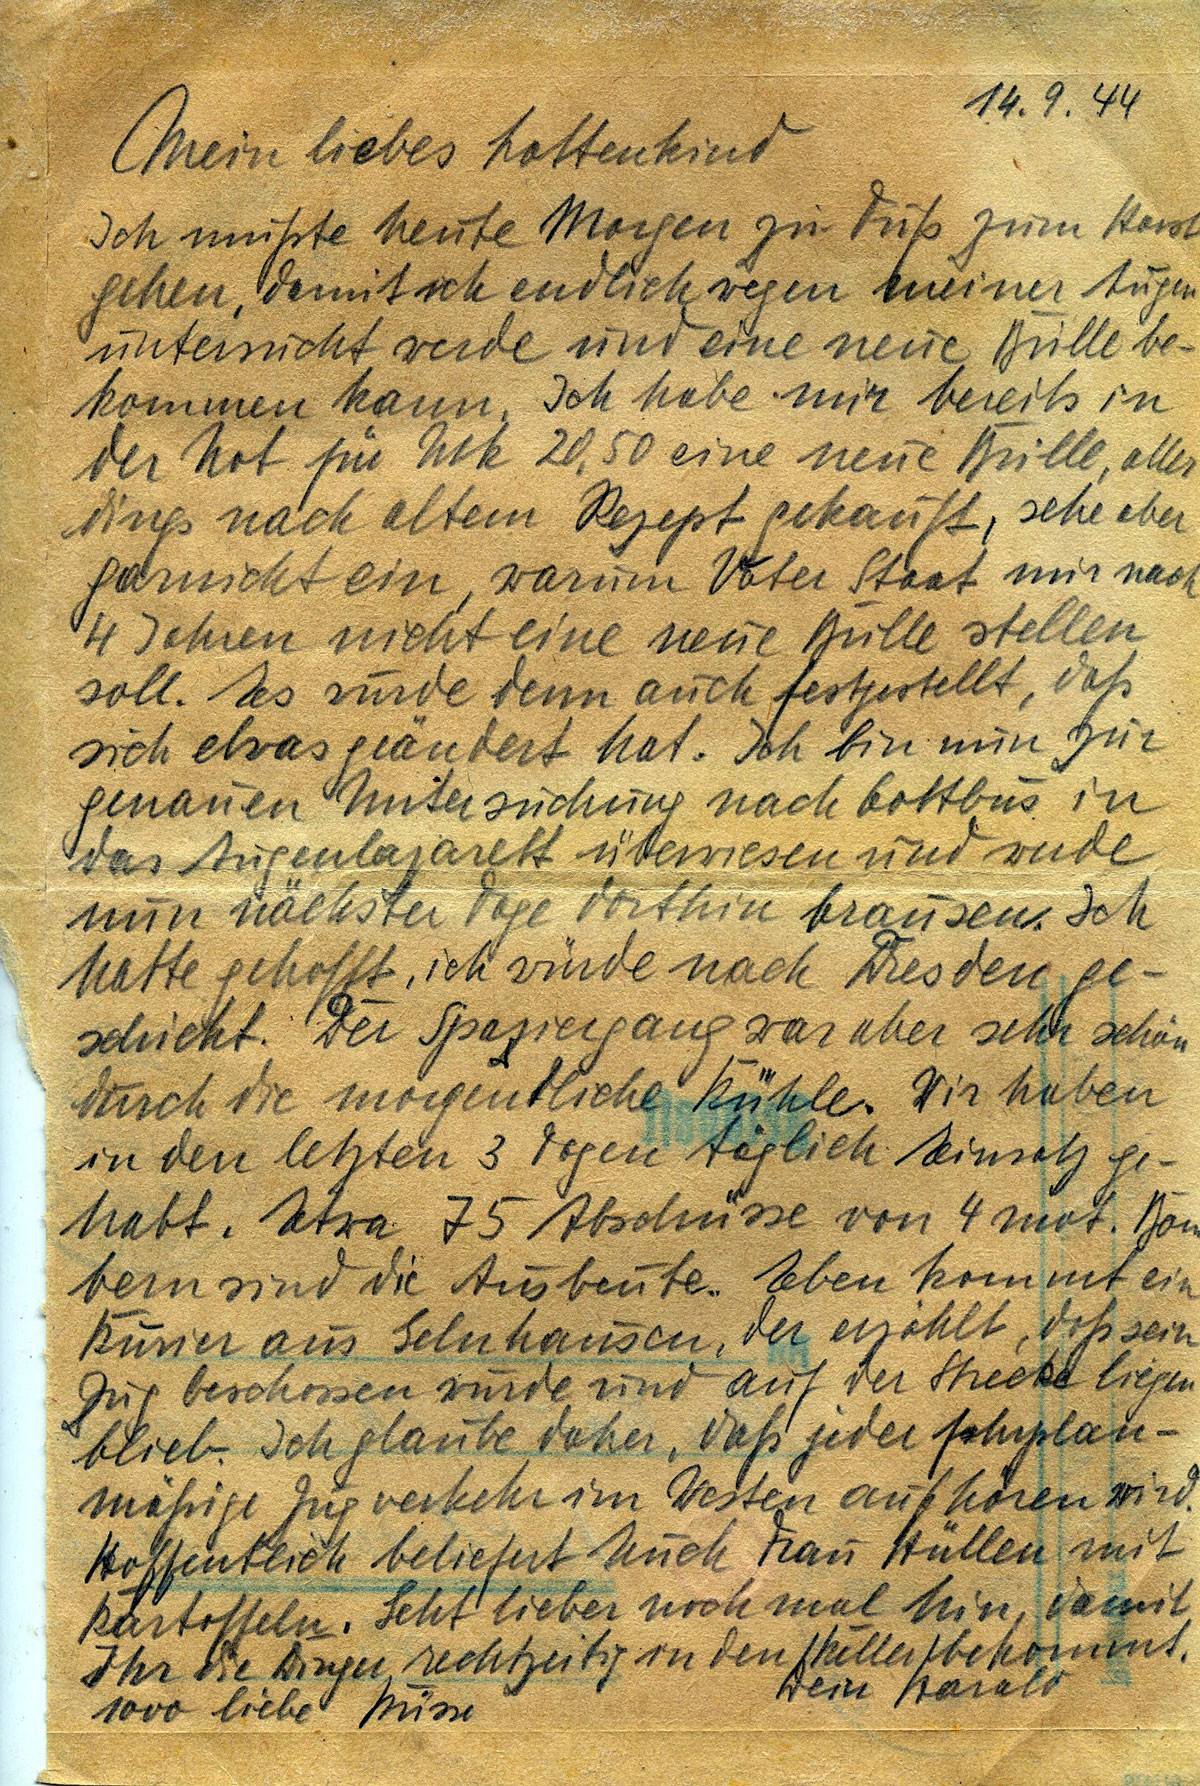 14.9.44
Mein liebes Lottenkind
Ich mußte heute Morgen zu Fuß zum Horst
gehen, damit ich endlich wegen meiner Augen
untersucht werde und eine neue Brille be-
kommen kann. Ich habe mir bereits in
der Not für Mk 20,50 eine neue Brille, aller
dings nach altem Rezept gekauft, sehe aber
garnicht ein, warum Vater Staat mir nach
4 Jahren nicht eine neue Brille stellen
soll. Es wurde denn auch festgestellt, daß
sich etwas geändert hat. Ich bin nun zur
genauen Untersuchung nach Cottbus in
das Augenlazarett überwiesen und werde
nun nächster Tage dorthin brausen. Ich
hatte gehofft, ich würde nach Dresden ge-
schickt. Der Spaziergang war aber sehr schön
durch die morgendliche Kühle. Wir haben
in den letzten 3 Tagen täglich Einsatz ge-
habt. Etwa 75 Abschüsse von 4 mot. Bom
bern sind die Ausbeute. Eben kommt ein
Kurier aus Gelnhausen, der erzählt, daß sein
Zug beschossen wurde und auf der Strecke liegen
blieb. Ich glaube daher, daß jeder fahrplan-
mäßige Zugverkehr im Westen aufhören wird.
Hoffentlich beliefert Euch Frau Hüllen mit
Kartoffeln. Geht lieber noch mal hin, damit
Ihr die Dinger rechtzeitig in den Keller bekommt.
1000 liebe Küsse Dein Harald